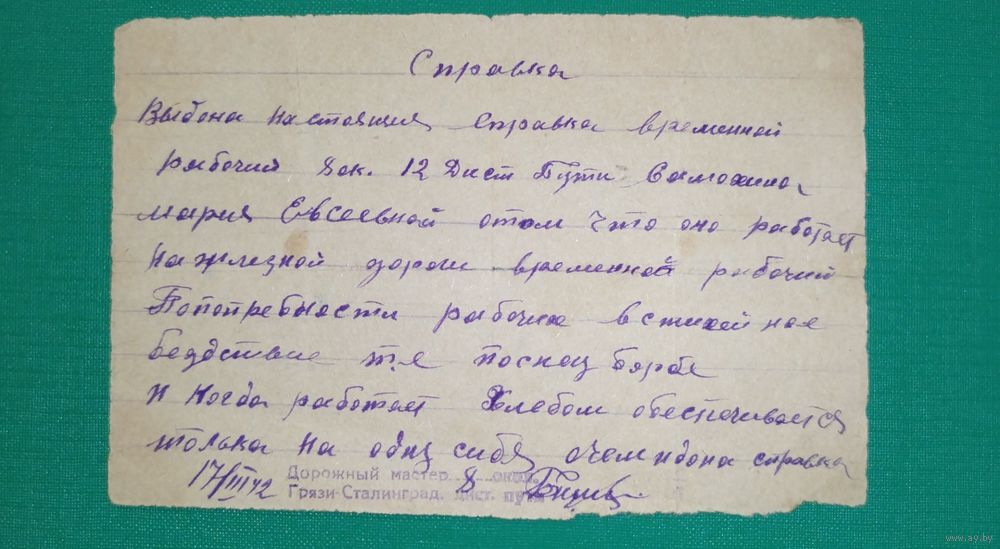 Справка
Выдона настоящия справка временной
рабочий 8 ок. 12 Дист Пути Самохина
мария Евсеевной отом что оно работает
на жлезной дороги временной рабочий
Попотребности рабочих встихейное
бедствие т.е поснег борбе
и когда работает хлебом обеспечивается
толька на одну себя очем вдона справка
17/III 42
Дорожный мастер 8 окол.
Грязи-Сталинград. дист. пути
www.ay.by